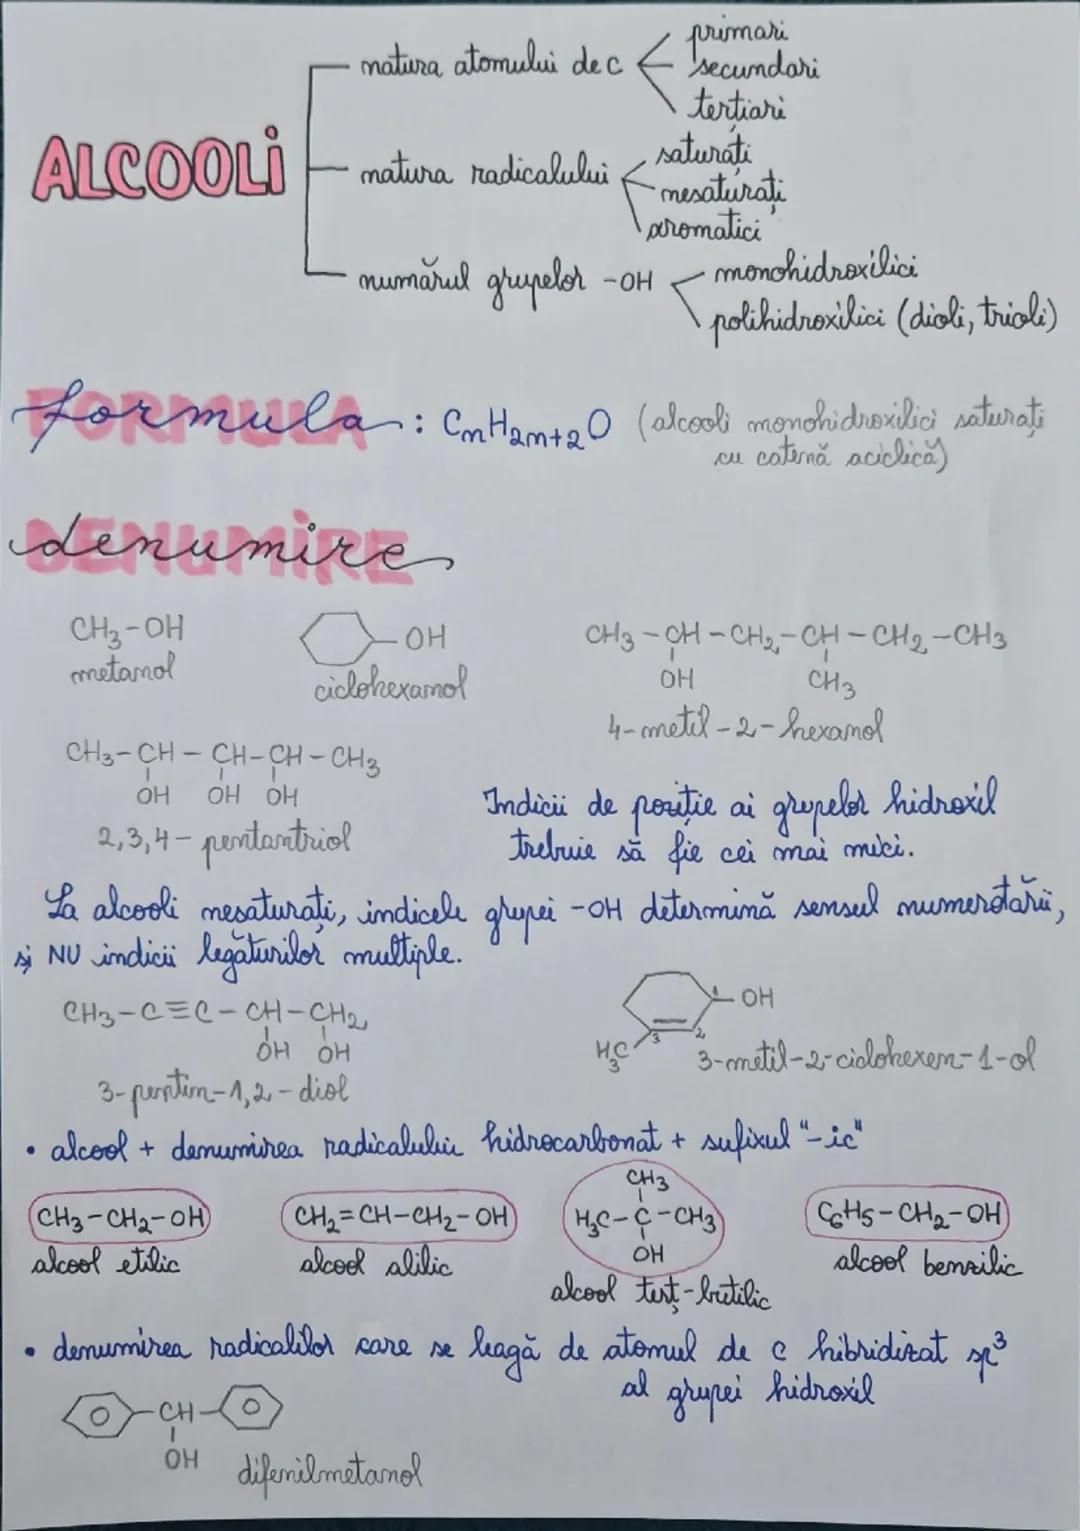 ALCOOLI
natura atomului de C
primari
secundari
terțiari
natura radicalului
saturați
nesaturați
aromatici
numărul grupelor -OH
monohidroxilici
polihidroxilici (dioli, trioli)
FORMULA
formula : CnH2n+2O (alcooli monohidroxilici saturați
cu catenă aciclică)
DENUMIRE
denumire
CH3-OH
metanol
OH
ciclohexanol
CH3-CH-CH2-CH-CH2-CH3
OH CH3
4-metil-2-hexanol
CH3-CH-CH-CH-CH3
OH OH OH
2,3,4-pentantriol
Indicii de poziție ai grupelor hidroxil
trebuie să fie cei mai mici.
La alcooli nesaturați, indicele grupei -OH determină sensul numerotării,
și NU indicii legăturilor multiple.
CH3-C≡C-CH-CH2
OH OH
3-pentin-1,2-diol
1 OH
H3C 3 2
3-metil-2-ciclohexen-1-ol
• alcool + denumirea radicalului hidrocarbonat + sufixul "-ic"
CH3-CH2-OH
alcool etilic
CH2=CH-CH2-OH
alcool alilic
CH3
H3C-C-CH3
OH
alcool terț-butilic
C6H5-CH2-OH
alcool benzilic
• denumirea radicalilor care se leagă de atomul de C hibridizat sp3
al grupei hidroxil
CH
OH
difenilmetanol